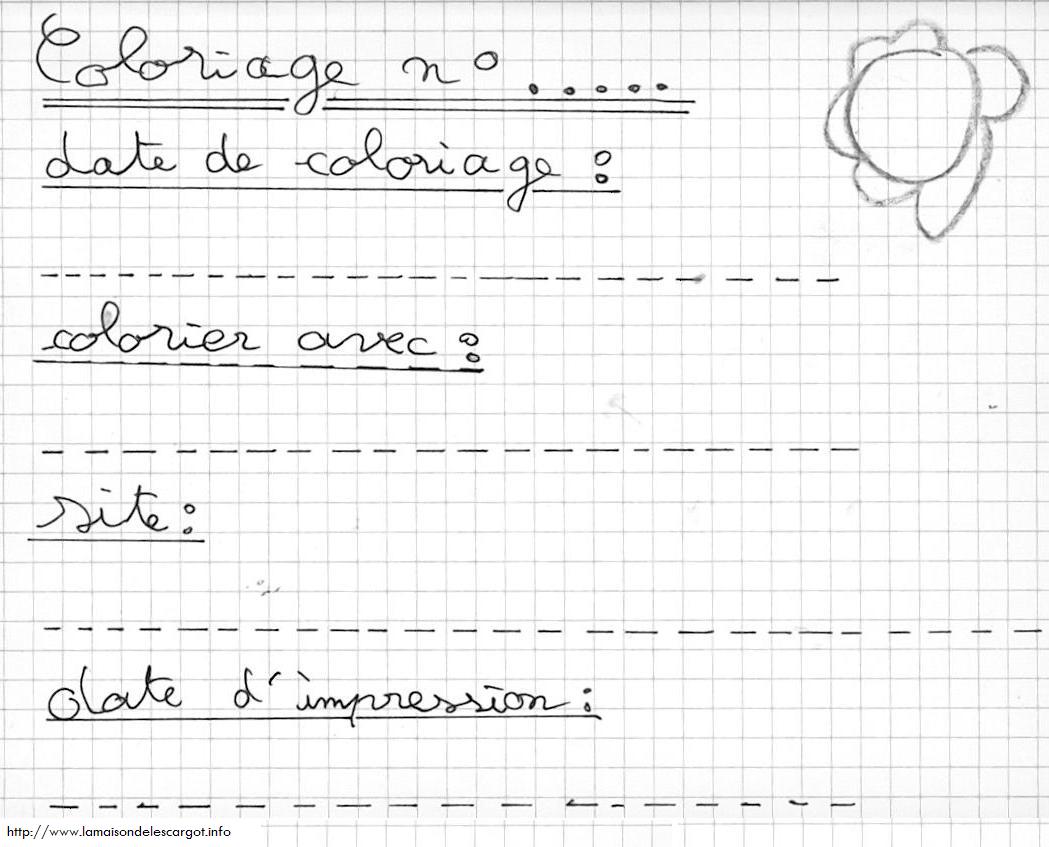 Coloriage n° .....
date de coloriage :
colorier avec :
site :
date d'impression :
http://www.lamaisondelescargot.info